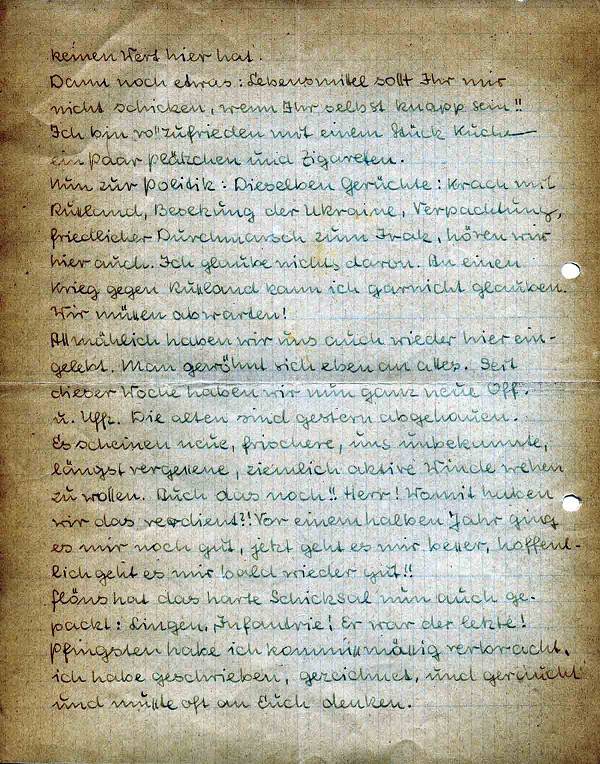 keinen Wert hier hat.
Dann noch etwas: Lebensmittel sollt Ihr mir
nicht schicken, wenn Ihr selbst knapp sein!!
Ich bin vollzufrieden mit einem Stück Kuchen
ein paar Plätzchen und Zigaretten.
Nun zur Politik: Dieselben Gerüchte: Krach mit
Rußland, Besetzung der Ukraine, Verpachtung,
friedlicher Durchmarsch zum Irak, hören wir
hier auch. Ich glaube nichts daran. An einen
Krieg gegen Rußland kann ich garnicht glauben.
Wir müssen abwarten!
Allmählich haben wir uns auch wieder hier ein-
gelebt. Man gewöhnt sich eben an alles. Seit
dieser Woche haben wir nun ganz neue Off.
u. Uffz. Die alten sind gestern abgehauen.
Es scheinen neue, frischere, uns unbekannte,
längst vergessene, ziemlich aktive Winde wehen
zu wollen. Auch das noch!! Herr! Womit haben
wir das verdient?! Vor einem halben Jahr ging
es mir noch gut, jetzt geht es mir besser, hoffent-
lich geht es mir bald wieder gut!!
Flöns hat das harte Schicksal nun auch ge-
packt: Lingen, Infantrie! Er war der letzte!
Pfingsten habe ich kommißmäßig verbracht,
ich habe geschrieben, gezeichnet, und geraucht
und mußte oft an Euch denken.